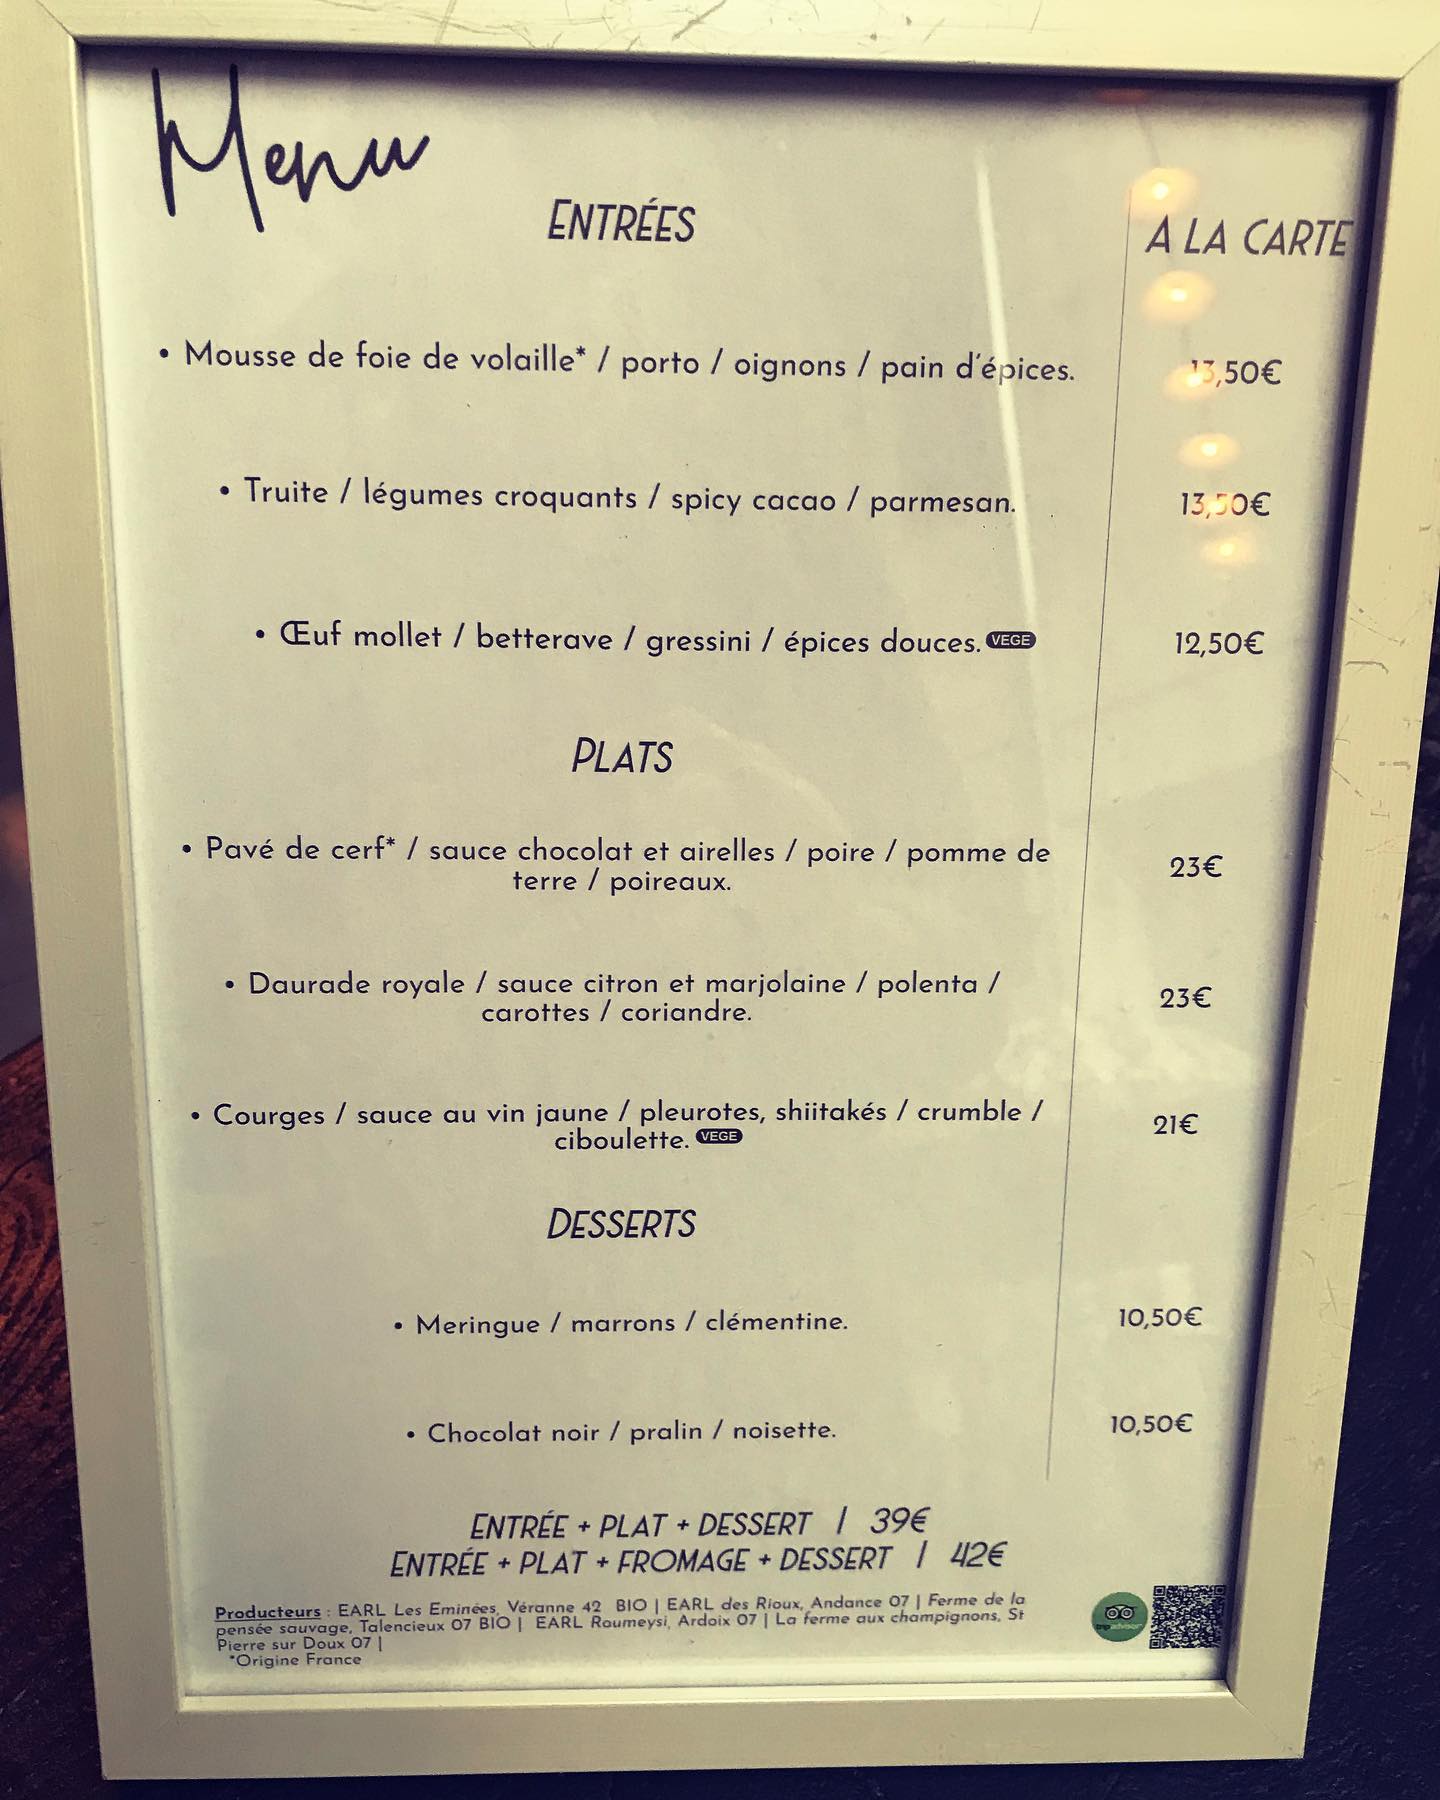 Menu
ENTRÉES
A LA CARTE
• Mousse de foie de volaille* / porto / oignons / pain d'épices. 13,50€
• Truite / légumes croquants / spicy cacao / parmesan. 13,50€
• Œuf mollet / betterave / gressini / épices douces. VEGE 12,50€
PLATS
• Pavé de cerf* / sauce chocolat et airelles / poire / pomme de
terre / poireaux. 23€
• Daurade royale / sauce citron et marjolaine / polenta /
carottes / coriandre. 23€
• Courges / sauce au vin jaune / pleurotes, shiitakés / crumble /
ciboulette. VEGE 21€
DESSERTS
• Meringue / marrons / clémentine. 10,50€
• Chocolat noir / pralin / noisette. 10,50€
ENTRÉE + PLAT + DESSERT | 39€
ENTRÉE + PLAT + FROMAGE + DESSERT | 42€
Producteurs : EARL Les Eminées, Véranne 42 BIO | EARL des Rioux, Andance 07 | Ferme de la
pensée sauvage, Talencieux 07 BIO | EARL Roumeysi, Ardoix 07 | La ferme aux champignons, St
Pierre sur Doux 07 |
*Origine France
tripadvisor